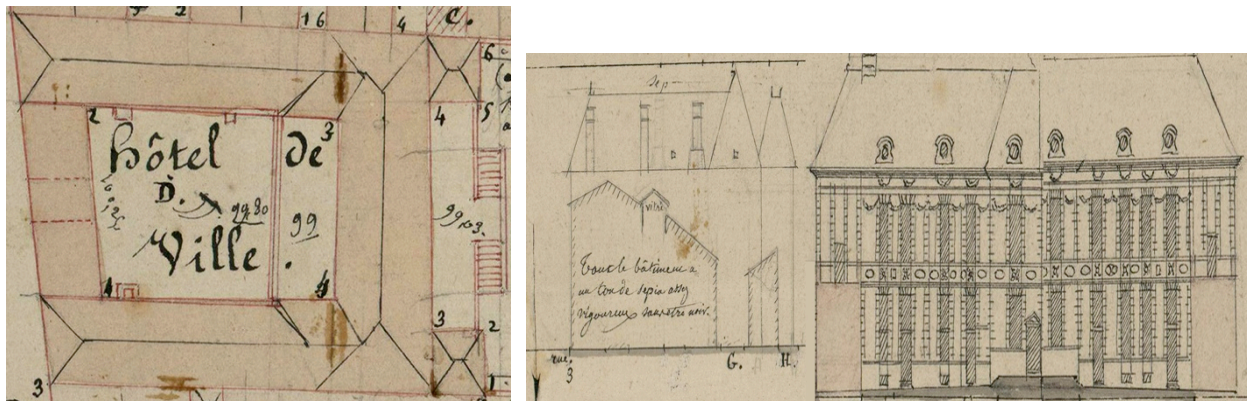 16
4
C.
6
2
hôtel
de
3
4
5
D.
99.80
99
99,03.
Ville.
4
4
3
2
3
1
sep
vitré
Tout le bâtiment a
un ton de sepia assez
vigoureux sans être noir.
rue.
3
G.
H.